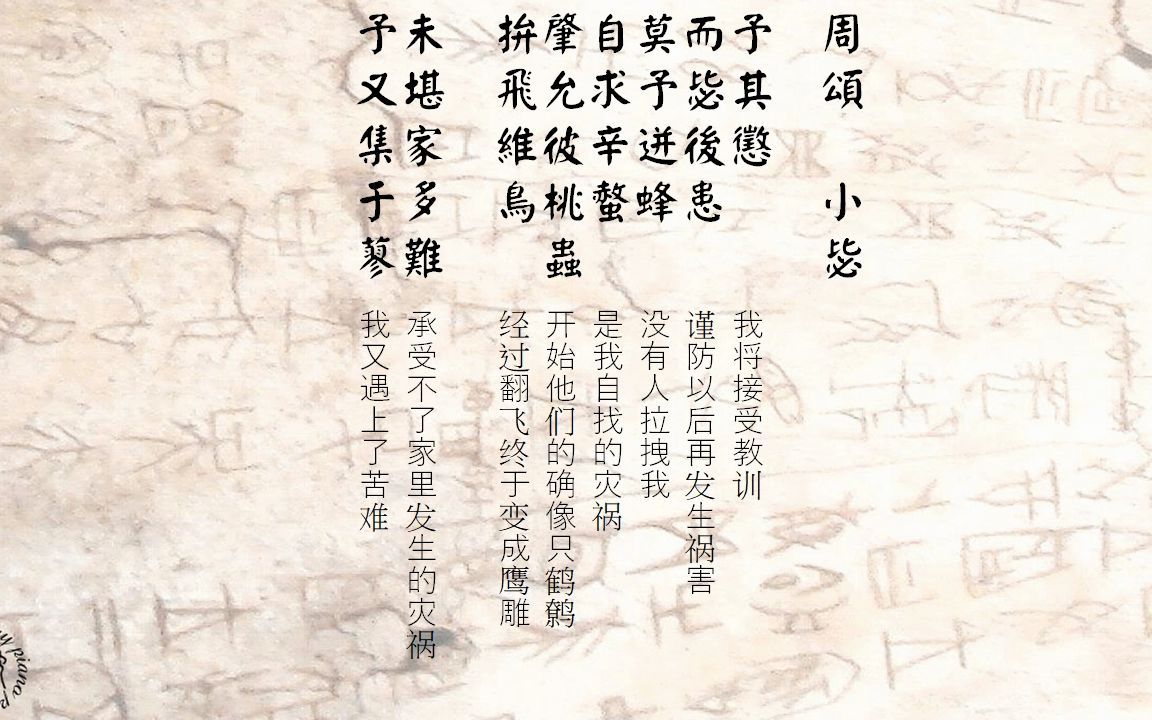 周頌 小毖
予其懲
而毖後患
莫予迸蜂
自求辛螫
肇允彼桃蟲
拚飛維鳥
未堪家多難
予又集于蓼
我将接受教训
谨防以后再发生祸害
没有人拉拽我
是我自找的灾祸
开始他们的确像只鹤鹩
经过翻飞终于变成鹰雕
承受不了家里发生的灾祸
我又遇上了苦难
piano